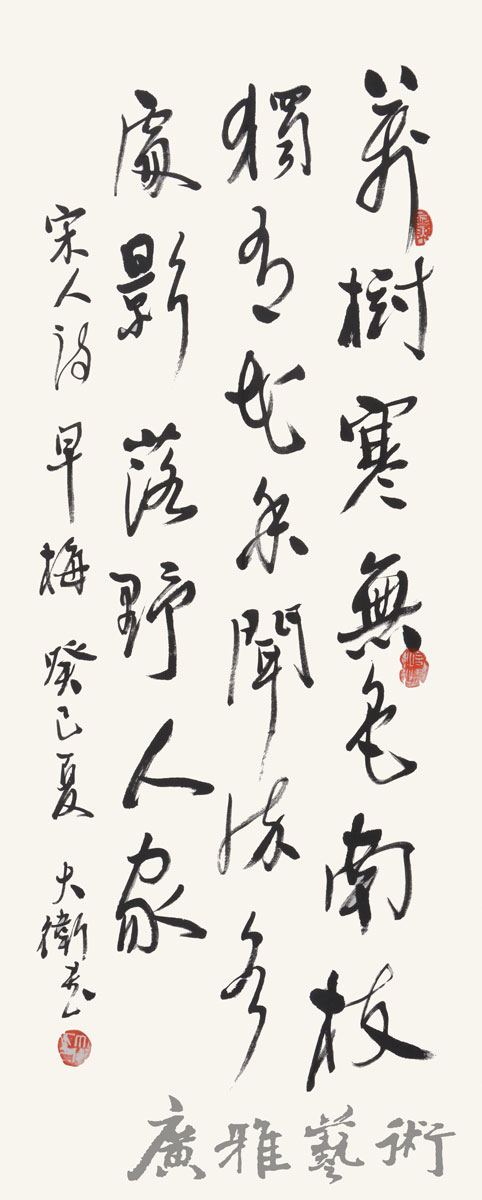 萬樹寒無色南枝
獨有花香聞流水
處影落野人家
宋人詩 早梅 癸巳夏 大衛書
廣雅藝術